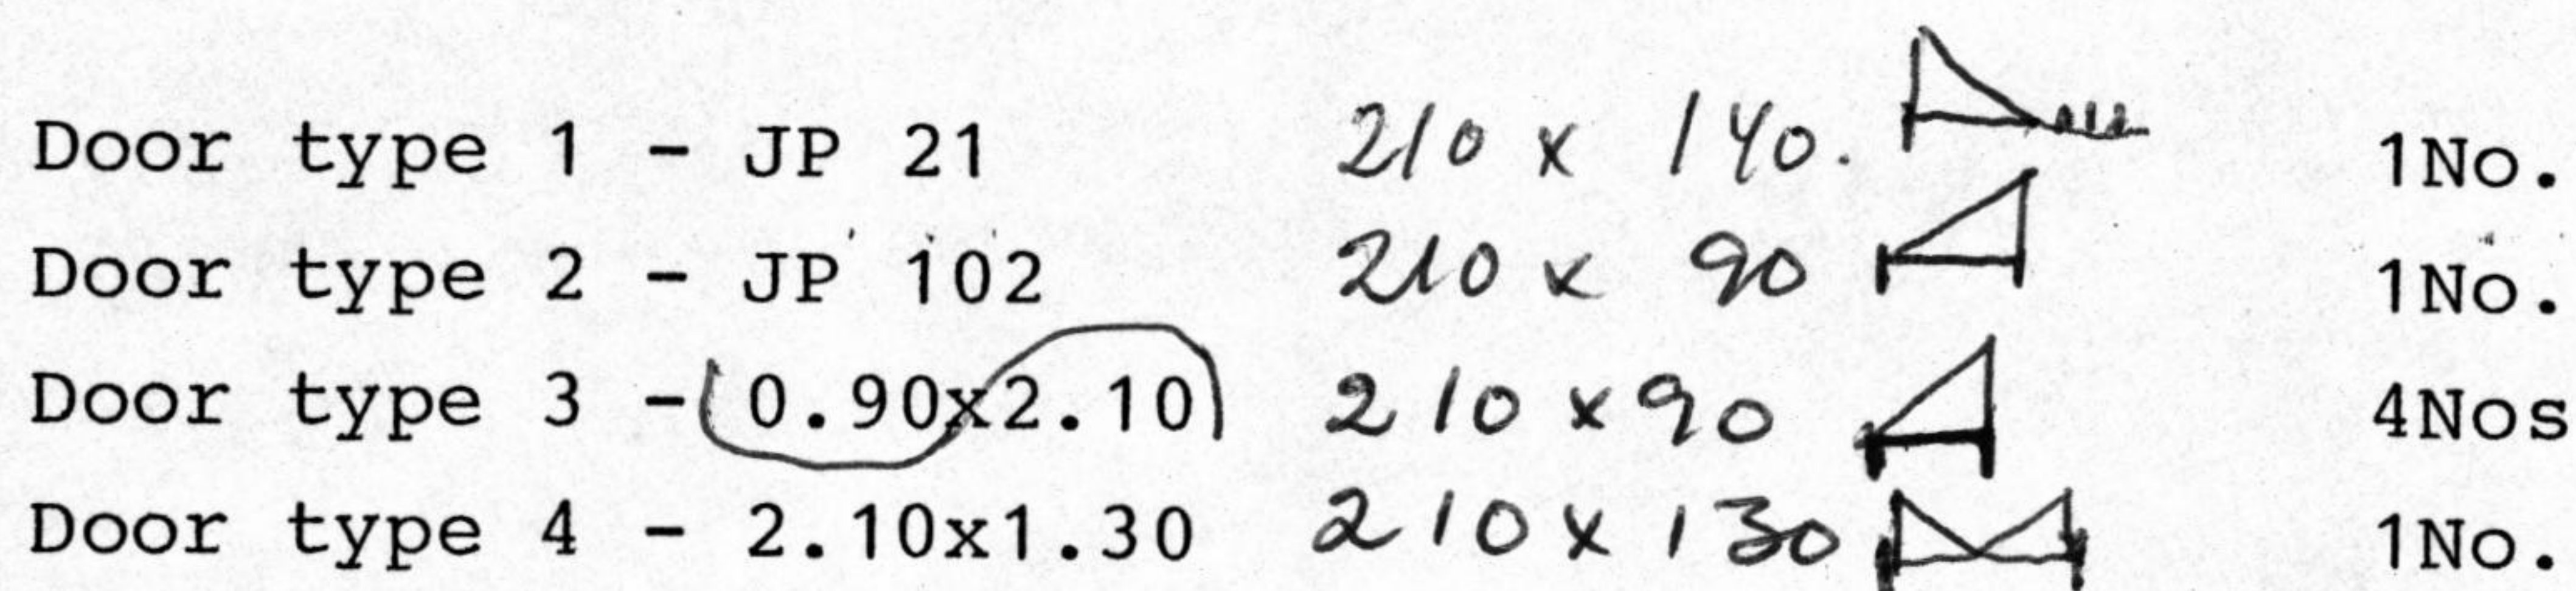 Door type 1 - JP 21 210 x 140. 1No.
Door type 2 - JP 102 210 x 90 1No.
Door type 3 - 0.90x2.10 210 x 90 4Nos
Door type 4 - 2.10x1.30 210 x 130 1No.